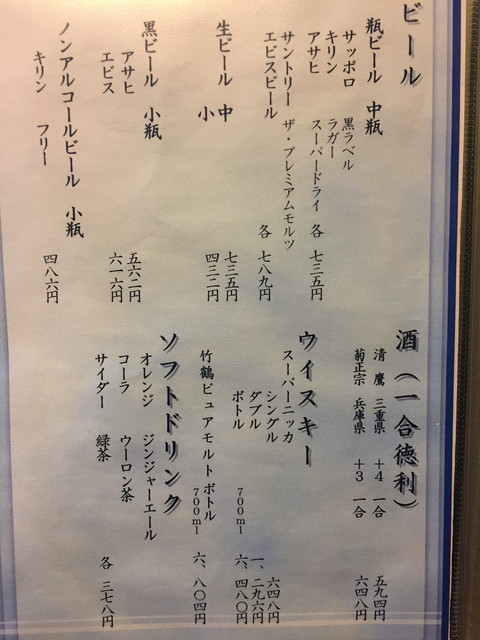 ビール
瓶ビール 中瓶
サッポロ 黒ラベル
キリン ラガー
アサヒ スーパードライ 各 七三五円
サントリー ザ・プレミアムモルツ
エビスビール 各 七八九円
生ビール 中 七三五円
小 四三二円
黒ビール 小瓶
アサヒ 五六二円
エビス 六一六円
ノンアルコールビール 小瓶
キリン フリー 四八六円
酒(一合徳利)
清鷹 三重県 +4 一合 五九四円
菊正宗 兵庫県 +3 一合 六四八円
ウイスキー
スーパーニッカ
シングル 六四八円
ダブル 一、二九六円
ボトル 700ml 六、四八〇円
竹鶴ピュアモルトボトル 700ml 六、八〇四円
ソフトドリンク
オレンジ ジンジャーエール
コーラ ウーロン茶
サイダー 緑茶 各 三七八円